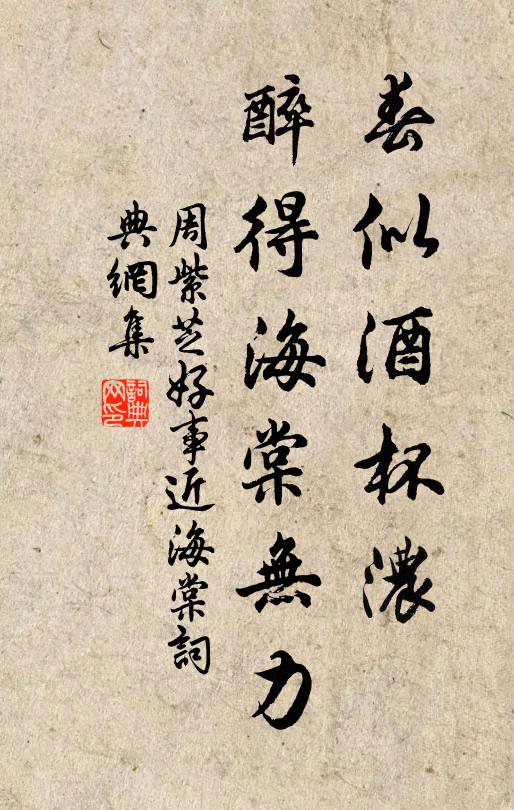 春似酒杯濃
醉得海棠無力
周紫芝好事近海棠詞
典網集
詞典網印